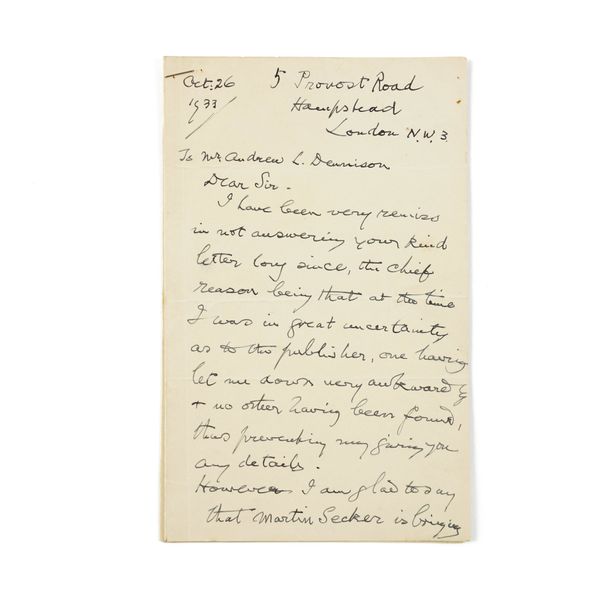 Oct: 26
1933
5 Provost Road
Hampstead
London N.W. 3.
To Mr. Andrew L. Dennison
Dear Sir -
I have been very remiss
in not answering your kind
letter long since, the chief
reason being that at the time
I was in great uncertainty
as to the publisher, one having
let me down very awkwardly
+ no other having been found,
thus preventing my giving you
any details.
However I am glad to say
that Martin Secker is bringing